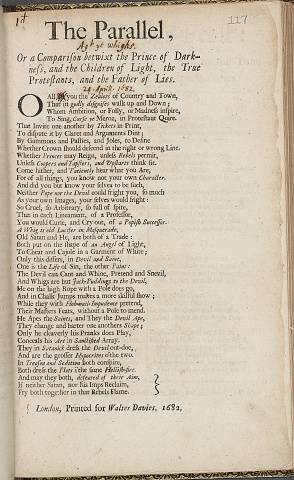 1d
117
The Parallel,
Agt ye whigs.
Or a Comparison betwixt the Prince of Dark-
ness, and the Children of Light, the True
Protestants, and the Father of Lies.
24. April. 1682.
O All you the Zealots of Country and Town,
That in godly disguises walk up and Down;
Whom Ambition, or Folly, or Madness inspire,
To Sing, Curse ye Meroz, in Protestant Quire.
That Invite one another by Tickets in Print,
To dispute it by Claret and Arguments Dint;
By Gammons and Pasties, and Joles, to Define
Whether Crown should descend in the right or wrong Line.
Whether Princes may Reign, unless Rebels permit,
Unless Coopers and Tapsters, and Upstarts think fit.
Come hither, and Patiently hear what you Are,
For of all things, you know not your own Character.
And did you but know your selves to be such,
Neither Pope nor the Devil could fright you, so much
As your own Images, your selves would fright:
So Cruel, so Arbitrary, so full of spite,
That in each Lineament, of a Professor,
You would Curse, and Cry out, of a Popish Successor.
A Whig is old Lucifer in Masquerade,
Old Satan and He, are both of a Trade:
Both put on the shape of an Angel of Light,
To Cheat and Cajole in a Garment of White;
Only this differs, in Devil and Saint,
One is the Life of Sin, the other Paint:
The Devil can Cant and Whine, Pretend and Snevil,
And Whigs are but Jack-Puddings to the Devil,
He on the high Rope with a Pole does go,
And in Chalk Jumps makes a more skilful show;
While they with Hobnail-Impudence pretend,
Their Masters Feats, without a Pole to mend.
He Apes the Saints, and They the Devil Ape,
They change and barter one anothers Shape;
Only he cleaverly His Pranks does Play,
Conceals his Art in Sanctified Array.
They in Satanick dress the Devil out-doe,
And are the grosser Hypocrites o'the two.
In Treason and Sedition both conspire,
Both dress the Plots i'the same Hellish-fire.
And may they both, defeated of their Aim,
If neither Satan, nor his Imps Reclaim,
Fry both together in that Rebels Flame.
London, Printed for Walter Davies, 1682.